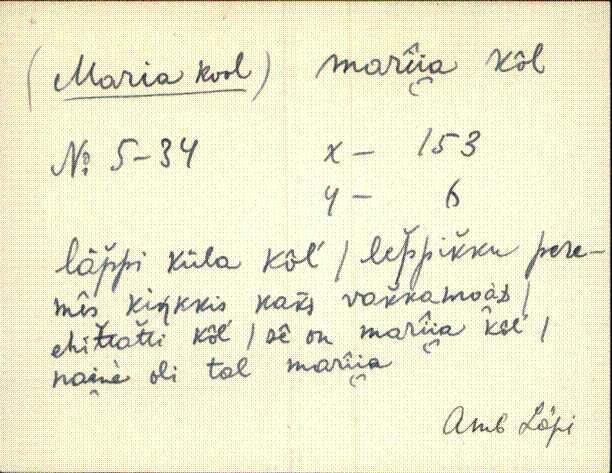 (Maria Kool) marîi̯a kôl
№: 5-34 x - 153
y - 6
läp̆pi küla kôl' / lep̆pik̆ku pere-
mês kiŋkkis kak̆s vak̆kamoàd /
ehit̆tat̆ti kôl' / sê on marîi̯a kôl' /
nai̯nè oli tal marîi̯a
Amb Löpi